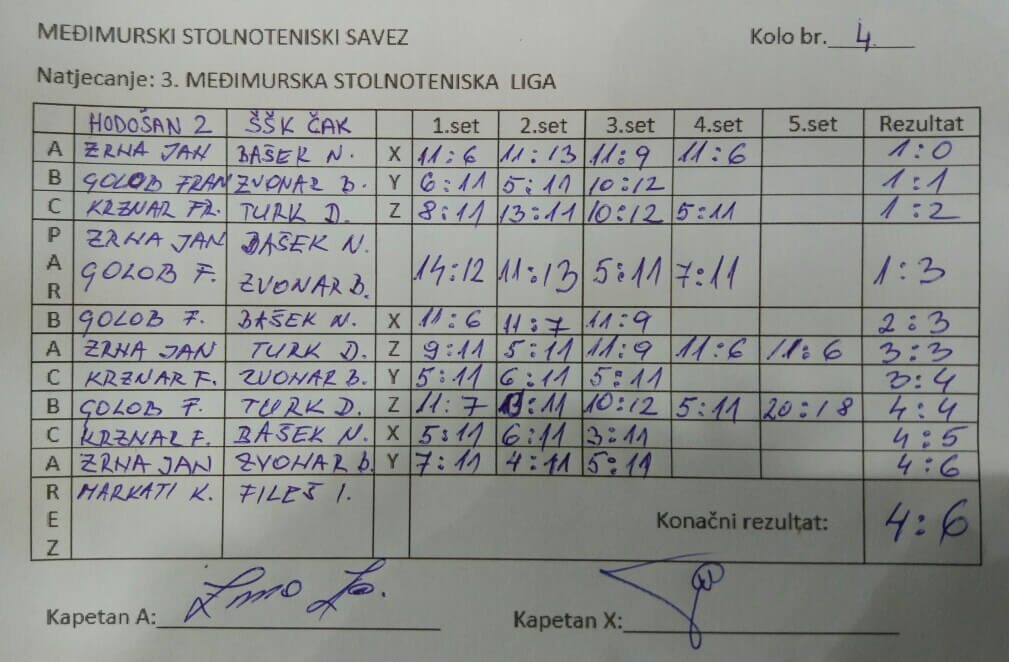 MEĐIMURSKI STOLNOTENISKI SAVEZ Kolo br. 4.
Natjecanje: 3. MEĐIMURSKA STOLNOTENISKA LIGA
HODOŠAN 2 ŠŠK ČAK 1.set 2.set 3.set 4.set 5.set Rezultat
A ZRNA JAN BAŠEK N. X 11:6 11:13 11:9 11:6 1:0
B GOLOB FRAN ZVONAR B. Y 6:11 5:11 10:12 1:1
C KRZNAR FR. TURK D. Z 8:11 13:11 10:12 5:11 1:2
P ZRNA JAN BAŠEK N.
A GOLOB F. ZVONAR B. 14:12 11:13 5:11 7:11 1:3
R
B GOLOB F. BAŠEK N. X 11:6 11:7 11:9 2:3
A ZRNA JAN TURK D. Z 9:11 5:11 11:9 11:6 11:6 3:3
C KRZNAR F. ZVONAR B. Y 5:11 6:11 5:11 3:4
B GOLOB F. TURK D. Z 11:7 :11 10:12 5:11 20:18 4:4
C KRZNAR F. BAŠEK N. X 5:11 6:11 3:11 4:5
A ZRNA JAN ZVONAR B. Y 7:11 4:11 5:11 4:6
R MARKATI K. FILEŠ I.
E Konačni rezultat: 4:6
Z
Kapetan A:
Kapetan X: